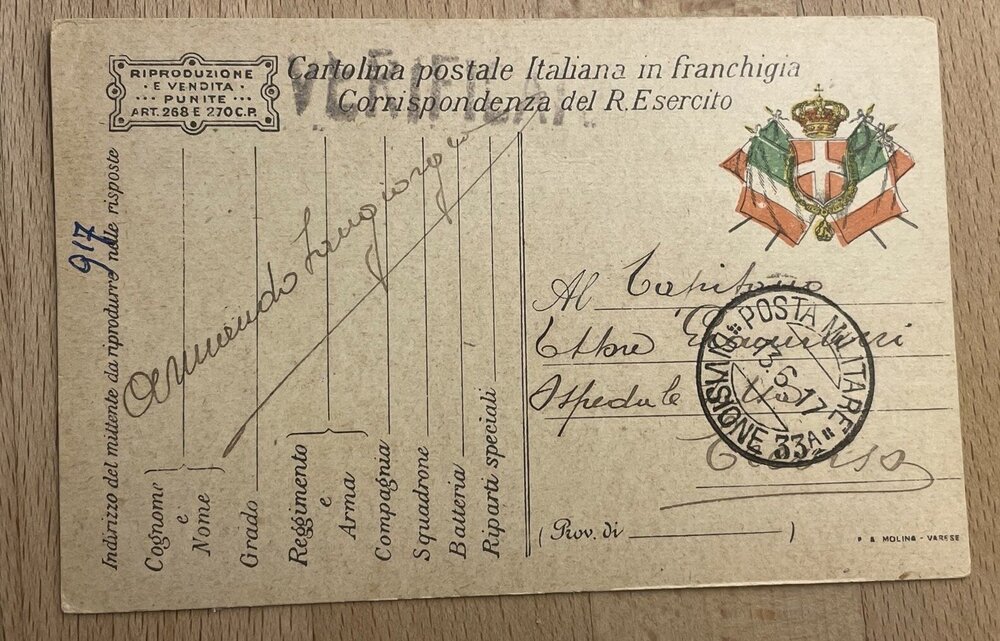 RIPRODUZIONE
E VENDITA
PUNITE
ART. 268 E 270 C.P.
Cartolina postale Italiana in franchigia
Corrispondenza del R. Esercito
Indirizzo del mittente da riprodurre nelle risposte
917
Cognome e Nome
Grado
Reggimento e Arma
Compagnia
Squadrone
Batteria
Riparti speciali
Armando
Al Capitano
Ettore
Ospedale
POSTA MILITARE
13.6.17
DIVISIONE 33A
(Prov. di )
P. A. MOLINA - VARESE